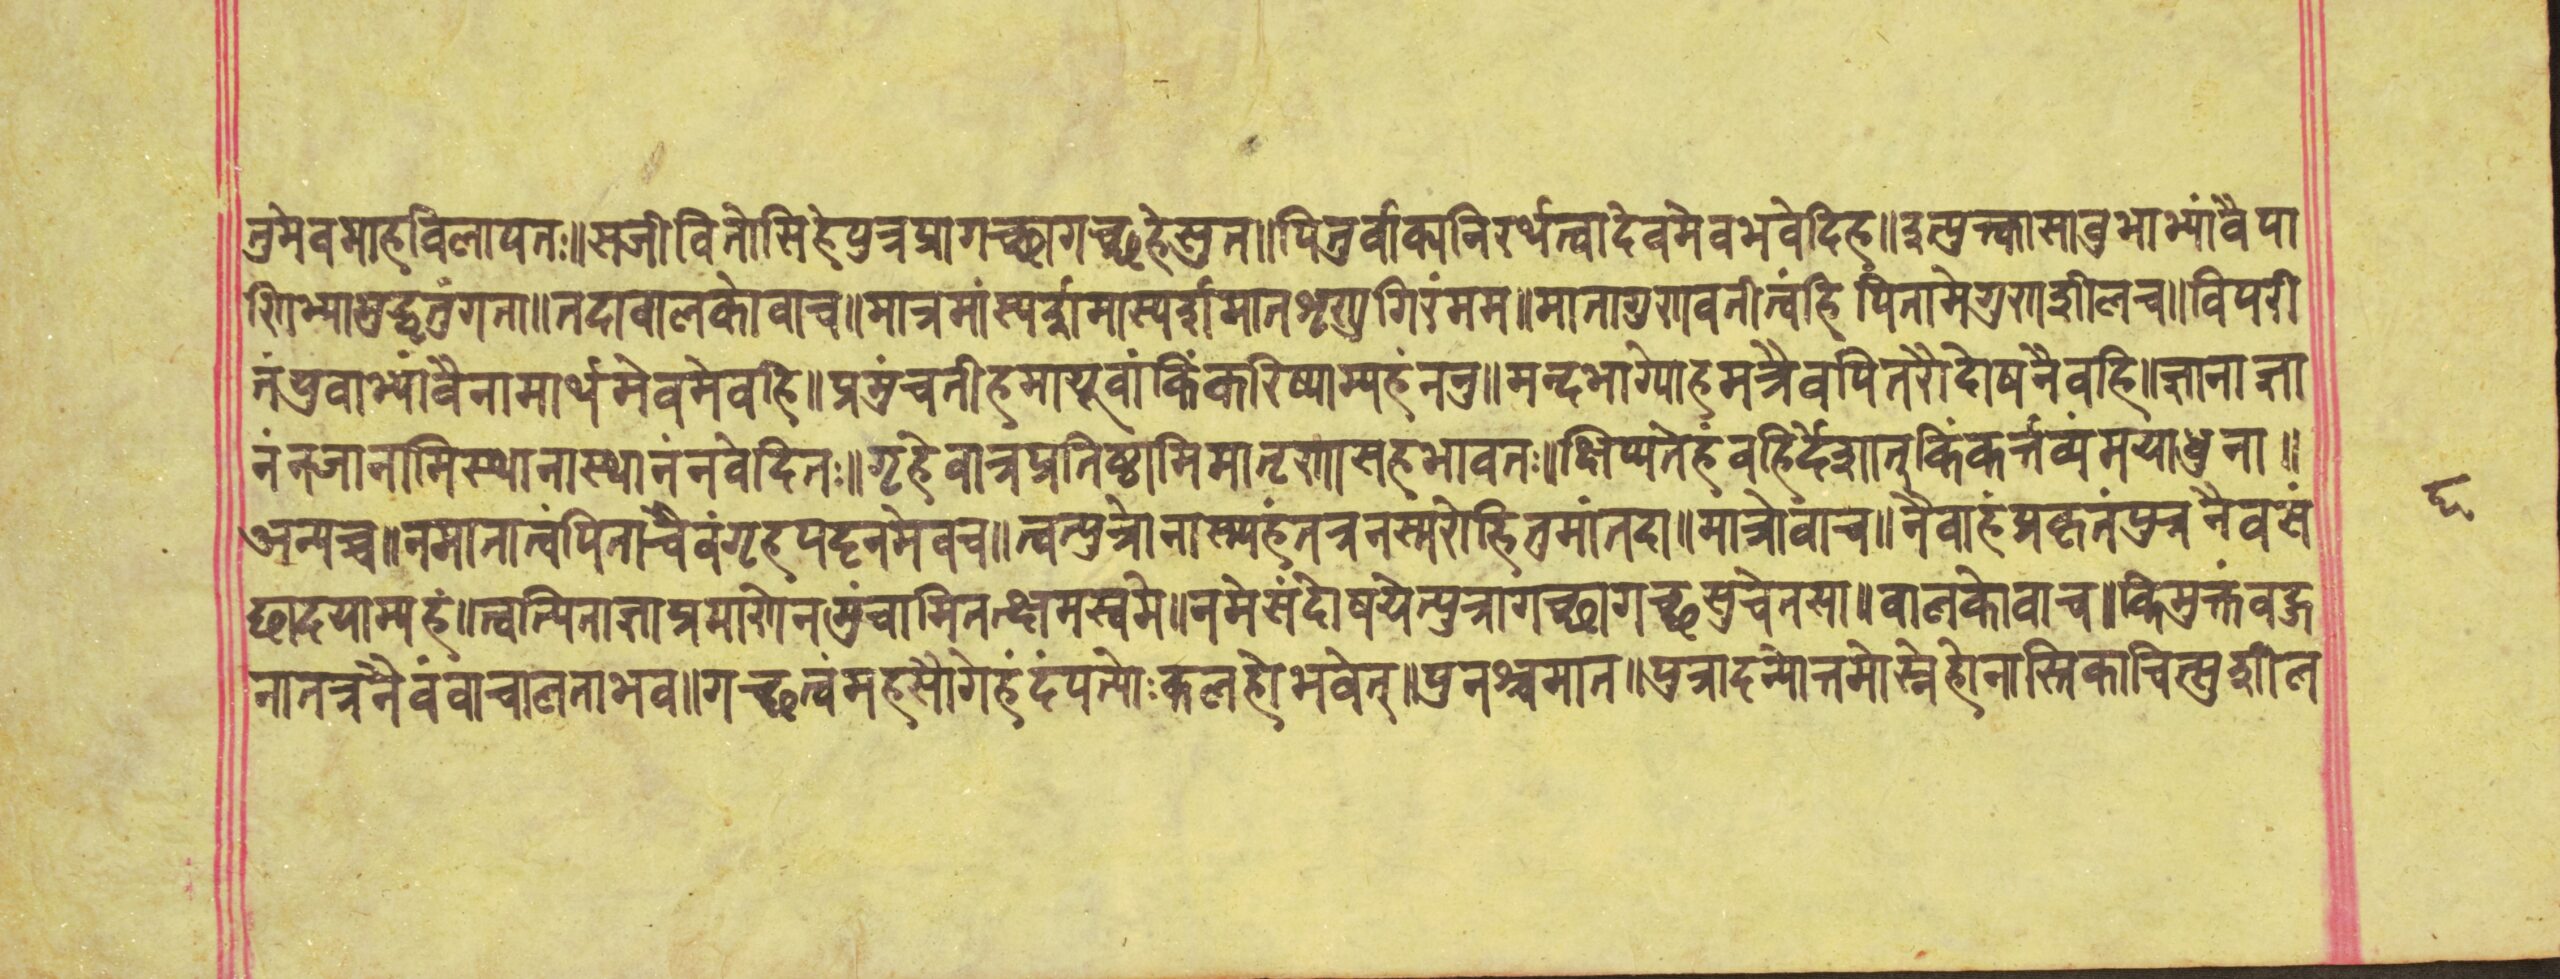 तुमेवमाहविलापतः॥सजीवितोसिहेपुत्रप्रागच्छागच्छहेसुत॥पितुर्वाक्यनिरर्थत्वादेवमेवभवेदिह॥इत्युत्त्कासावुभाभ्यांवैपा
णिभ्यामुद्धृतुंगता॥तदावालकोवाच॥मात्रमांस्पर्द्दामास्पर्द्दामातशृणुगिरंमम॥मातागुणवतीत्वंहिपितामेगुणशीलच॥विपरी
तंयुवाभ्यांवैनामार्थमेवमेवहि॥प्रमुंचतीहमायूवांकिंकरिष्याम्यहंननु॥मन्दभाग्योहमत्रैवपितरौदोषनैवहि॥ज्ञानाज्ञा
नंनजानामिस्थानास्थानंनवेदितः॥गृहेवात्रप्रतिष्ठामिमातृणासहभावतः॥क्षिप्यतेहंवहिर्देशात्किंकर्त्तव्यंमयाधुना॥
अन्यच्च॥नमातात्वंपिताचैवंगृहपदृनमेवच॥त्वत्पुत्रोनास्म्यहंतत्रनस्मरोहितुमांतदा॥मात्रोवाच॥नैवाहंप्रकृतंपुत्रनैवसं
छादयाम्यहं॥त्वत्पिताज्ञाप्रमाणेनमुंचामितत्क्षमस्वमे॥नमेसंदोषयेत्पुत्रागच्छागच्छसुचेतसा॥वालकोवाच॥किमुक्तंवह्र
नातत्रनैवंवाचालताभव॥गच्छत्वंमहसौगेहंदंपत्योःकलहोभवेत्॥पुनश्चमात॥पुत्रादन्योत्तमोस्नेहोनास्तिकाचित्सुशील